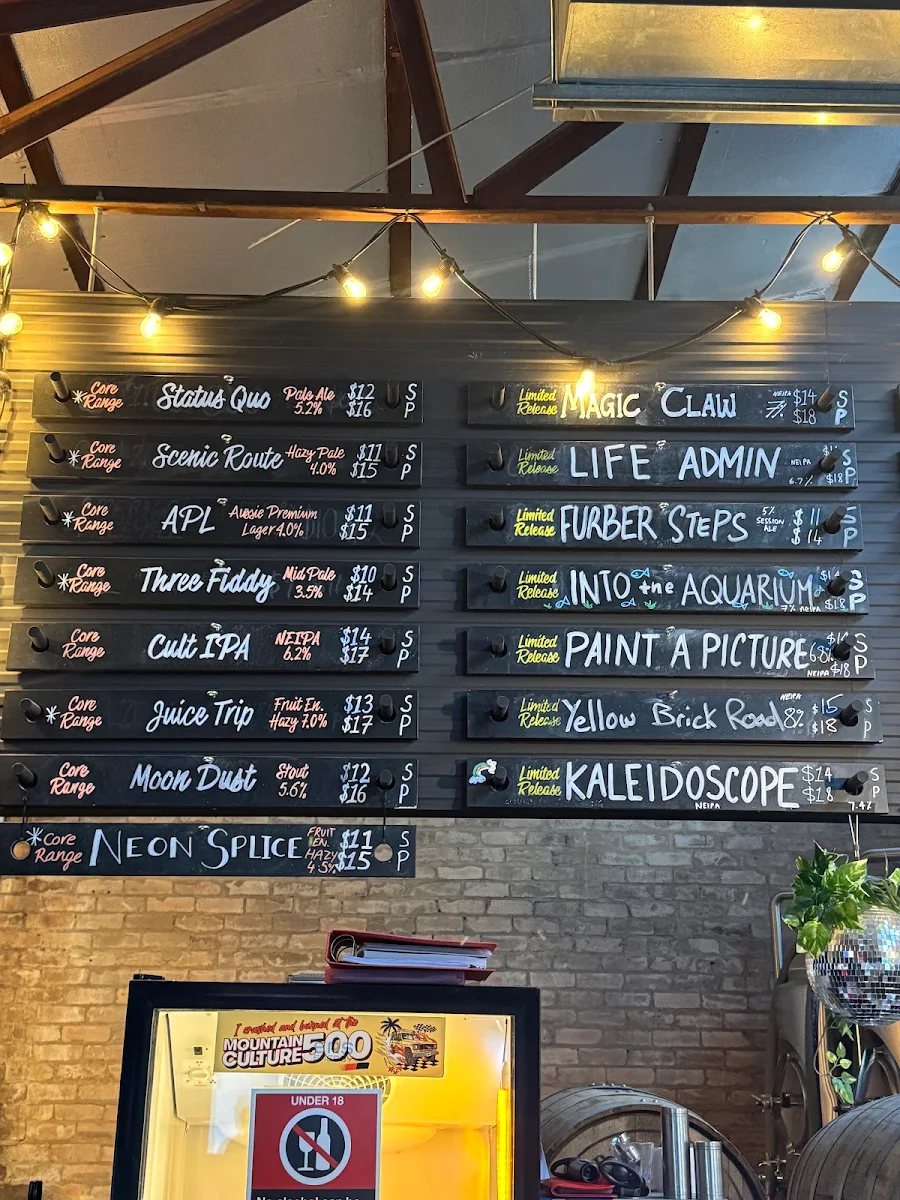 *Core Range Status Quo Pale Ale 5.2% $12 S $16 P
*Core Range Scenic Route Hazy Pale 4.0% $11 S $15 P
*Core Range APL Aussie Premium Lager 4.0% $11 S $15 P
*Core Range Three Fiddy Mid Pale 3.5% $10 S $14 P
Core Range Cult IPA NEIPA 6.2% $14 S $17 P
*Core Range Juice Trip Fruit En. Hazy 7.0% $13 S $17 P
Core Range Moon Dust Stout 5.6% $12 S $16 P
*Core Range NEON SPLICE FRUIT EN. HAZY 4.5% $11 S $15 P
Limited Release MAGIC CLAW NEIPA $14 S $18 P
Limited Release LIFE ADMIN NEIPA 6.7% S $18 P
Limited Release FURBER STEPS 5% SESSION ALE $11 S $14 P
Limited Release INTO the AQUARIUM 7% NEIPA S $18 P
Limited Release PAINT A PICTURE NEIPA S $18 P
Limited Release Yellow Brick Road NEIPA 8% $15 S $18 P
Limited Release KALEIDOSCOPE NEIPA $14 S $18 P 7.4%
I crashed and burned at the
MOUNTAIN CULTURE 500
UNDER 18